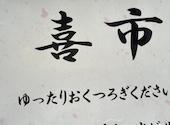 喜市
ゆったりおくつろぎください